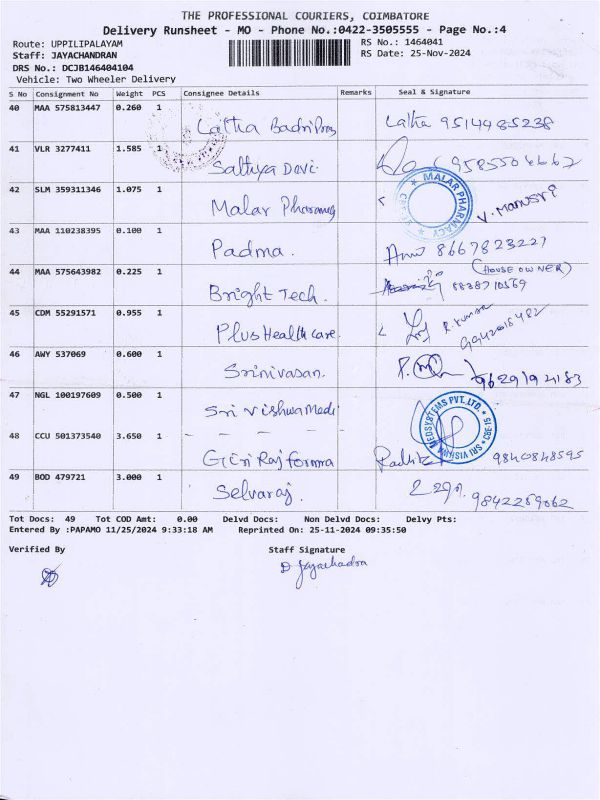 THE PROFESSIONAL COURIERS, COIMBATORE
Delivery Runsheet - MO - Phone No.:0422-3505555 - Page No.:4
Route: UPPILIPALAYAM RS No.: 1464041
Staff: JAYACHANDRAN RS Date: 25-Nov-2024
DRS No.: DCJB146404104
Vehicle: Two Wheeler Delivery
S No Consignment No Weight PCS Consignee Details Remarks Seal & Signature
40 MAA 575813447 0.260 1
Latha Latha 9514485238
41 VLR 3277411 1.585 1
Sathya Devi
42 SLM 359311346 1.075 1
Malar Pharmacy MALAR PHARMACY V. Manusri
43 MAA 110238395 0.100 1
Padma. 8667823227
44 MAA 575643982 0.225 1 (HOUSE OWNER)
Bright Tech.
45 CDM 55291571 0.955 1
Plus Health care. R. Kumar
46 AWY 537069 0.600 1
Srinivasan. 9629192183
47 NGL 100197609 0.500 1
Sri Vishwa Medi SRI VISHWA MEDSYSTEMS PVT. LTD.
48 CCU 501373540 3.650 1
9840848595
49 BOD 479721 3.000 1
Selvaraj. 9842259062
Tot Docs: 49 Tot COD Amt: 0.00 Delvd Docs: Non Delvd Docs: Delvy Pts:
Entered By :PAPAMO 11/25/2024 9:33:18 AM Reprinted On: 25-11-2024 09:35:50
Verified By Staff Signature